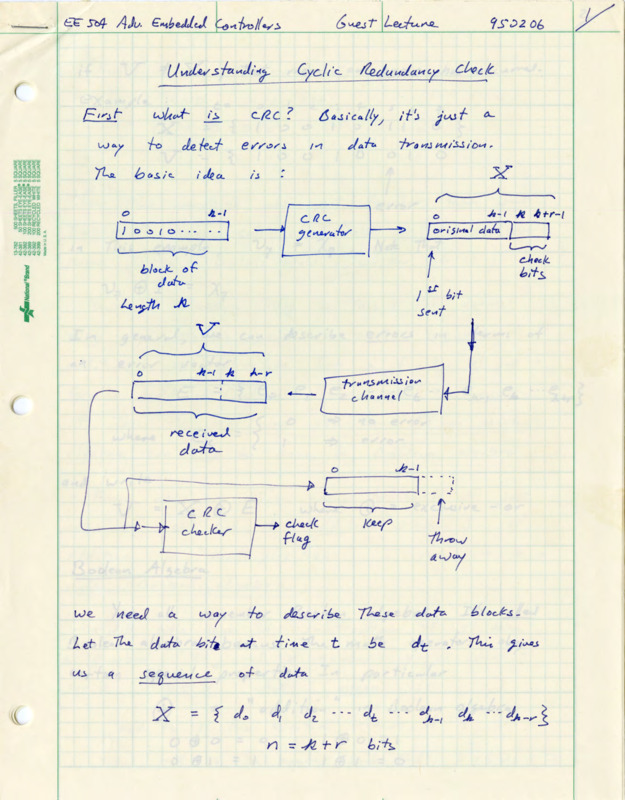 EE 504 Adv. Embedded Controllers Guest Lecture 950206 1/
Understanding Cyclic Redundancy Check
First what is CRC? Basically, it's just a
way to detect errors in data transmission.
The basic idea is :
X
0 k-1
CRC
generator
0 k-1 k k+r-1
1 0010 ... ..
original data
block of
data
Length k
check
bits
1st bit
sent
V
0 k-1 k k-r
transmission
channel
received
data
0 k-1
CRC
checker
check
flag
Keep
Throw
away
we need a way to describe These data blocks.
Let The data bits at time t be dt. This gives
us a sequence of data
X = { d0 d1 d2 ... dt ... dk-1 dk ... dk-r }
n = k+r bits
National Brand